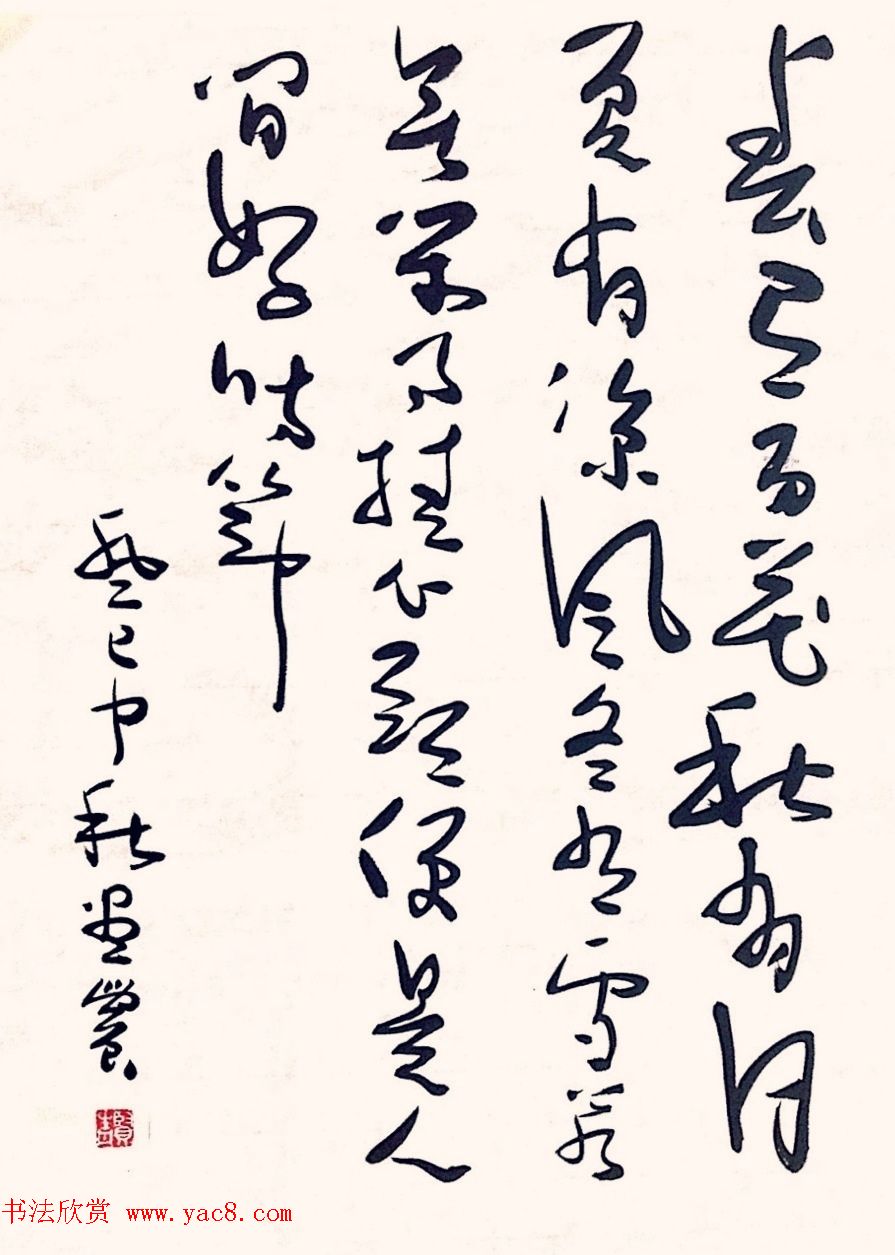 春有百花秋有月
夏有凉風冬有雪若
無閑事挂心頭便是人
間好時節
癸巳中秋
书法欣赏 www.yac8.com